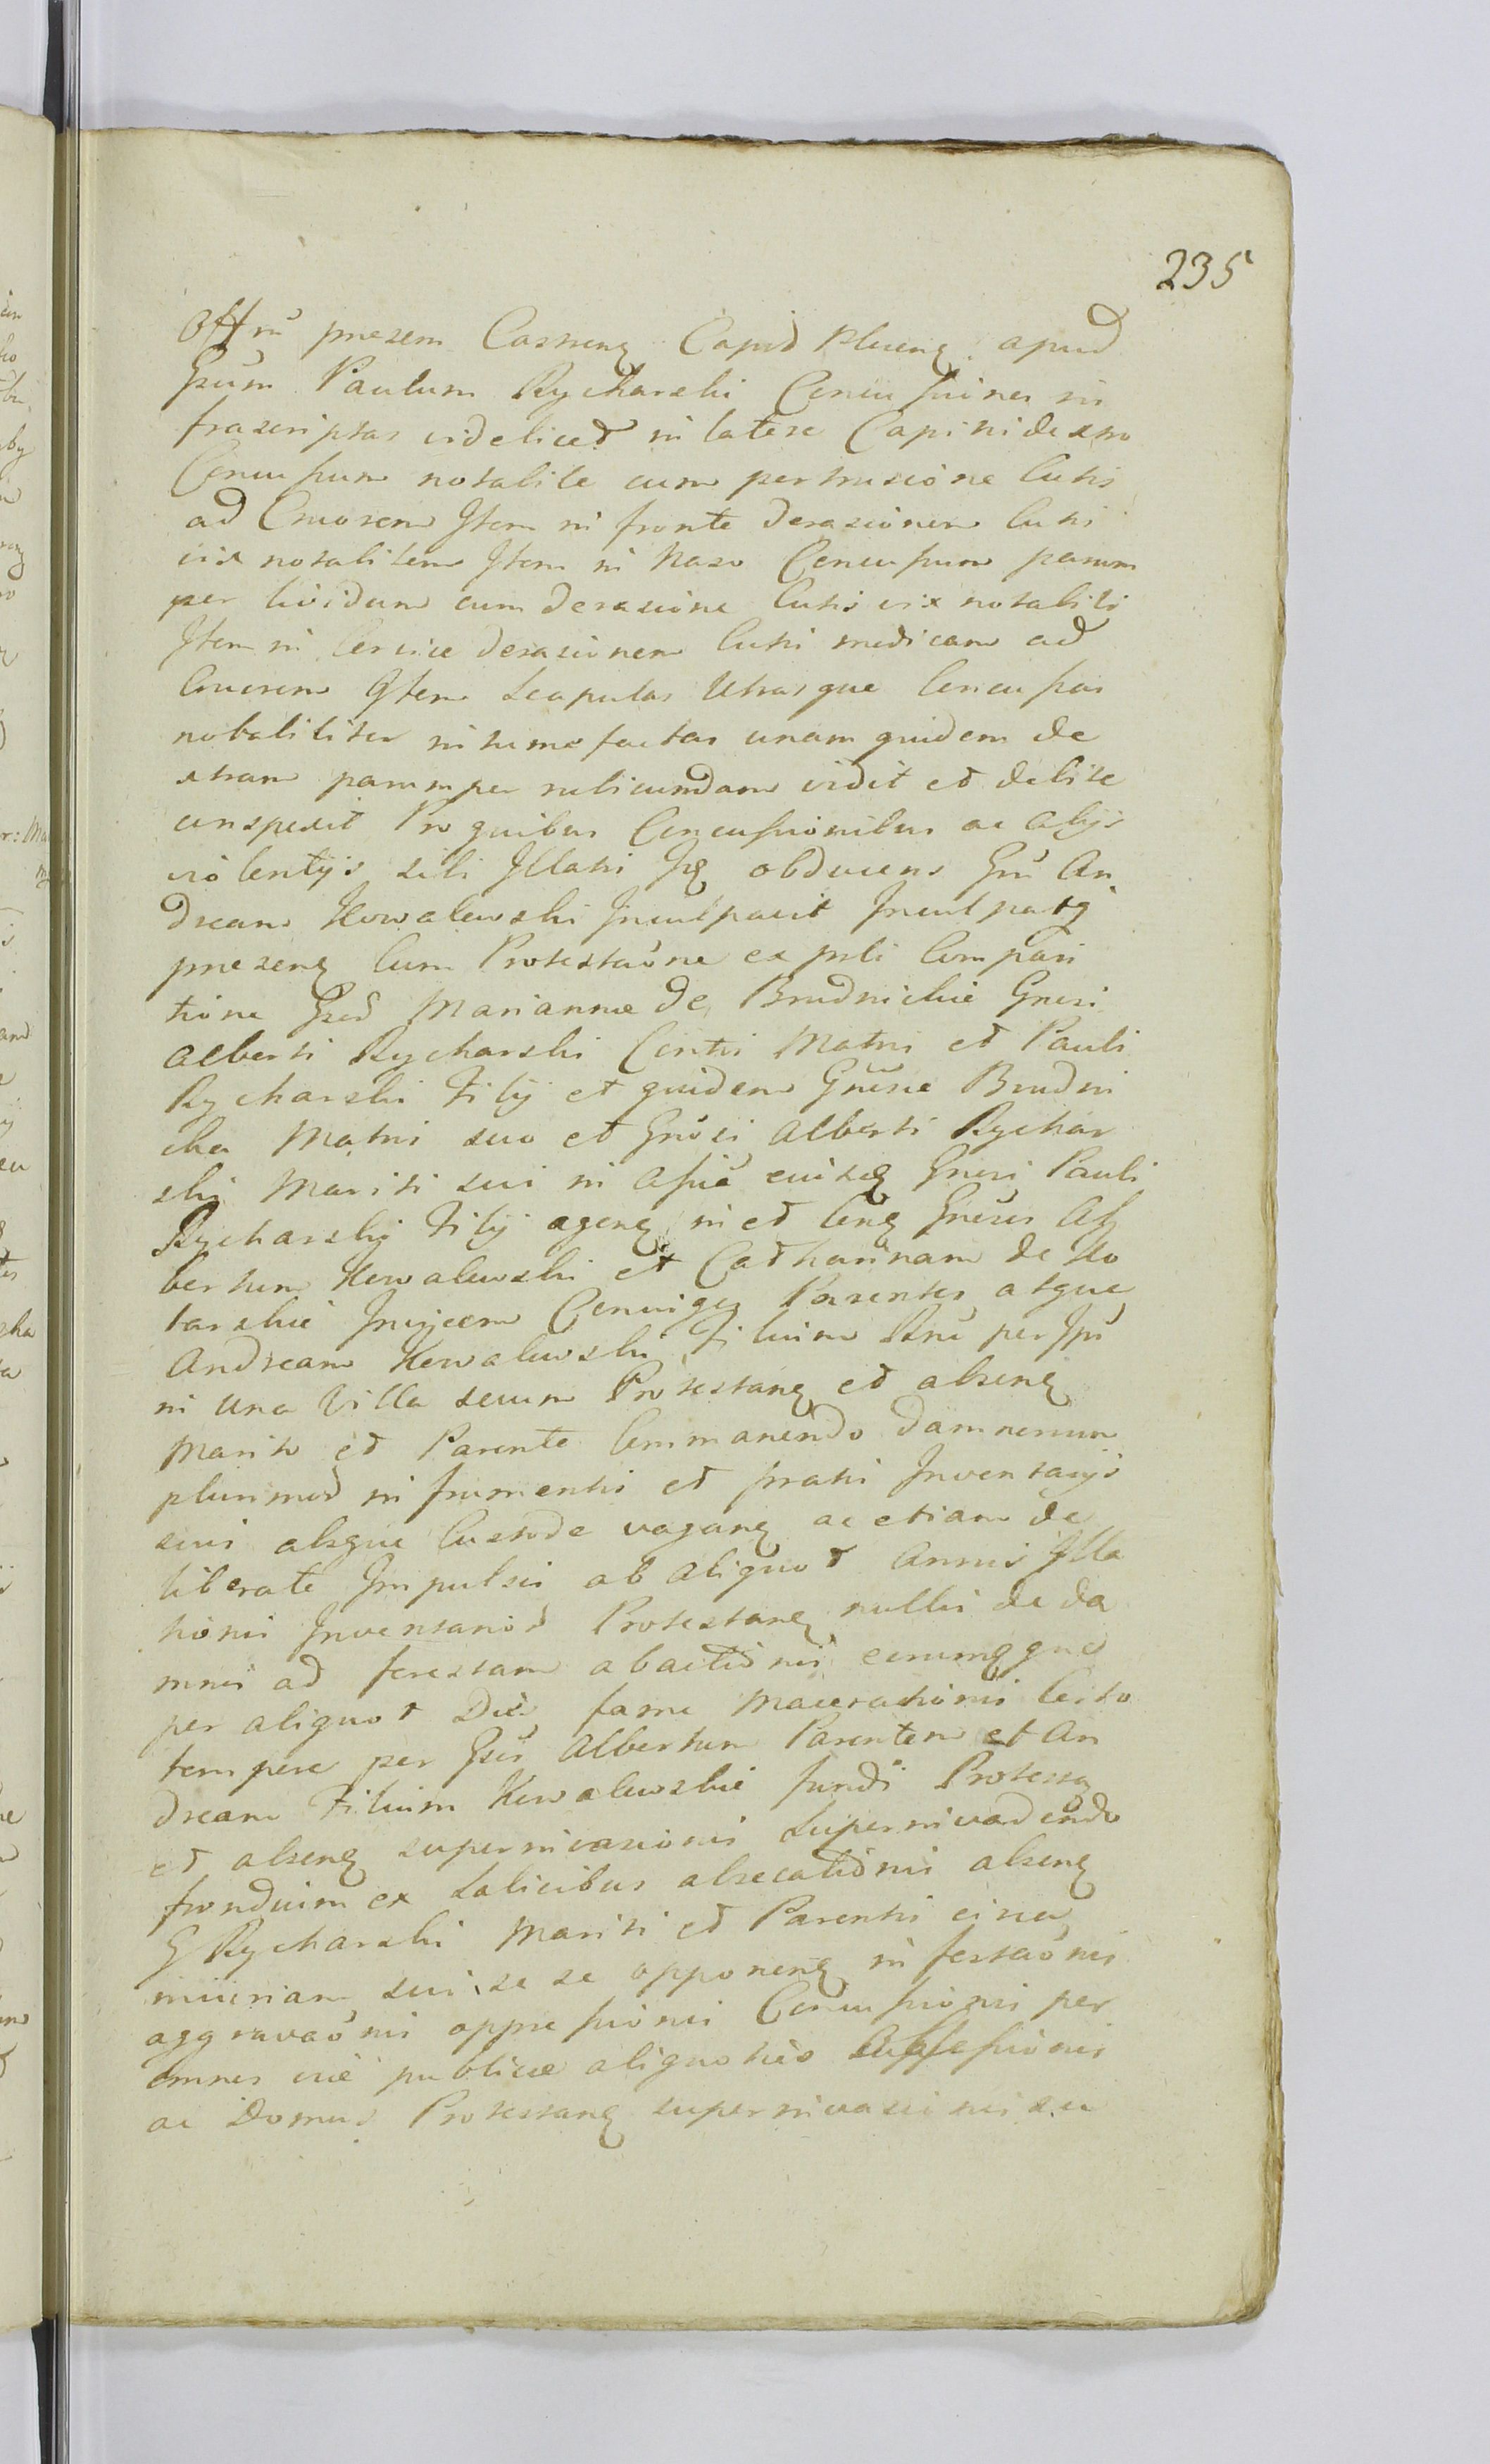 235
Offm̃ presen Castreneg Capitł Plocneg apud
Gsum Paulum Rycharski Concussiones in
frascriptas videlicet in latere Capitis dextro
Concussum notabile cum pertusione Cutis
ad Cruorem Item in fronte derasionem Cutis
vix notabilem Item in Naso Concussum parum
per lividum cum derasione Cutis vix notabili
Item in Cervice derasionem Cutis modicam ad
Cruorem Item Scapulas Utrasque Concussas
notabiliter intumefactas unam quidem de
xtram parumper rubicundam vidit et debite
conspexit Pro quibus Concussionibus ac alijs
violentijs sibi Illatis Ipse obducens Gnũ An
dream Kowalewski Inculpavit Inculpatq
presens Cum Protestaõne ex psli Compari
tione Gsed Marianna de Brudnickie Gnesi
Alberti Rycharski Conthi Matris et Pauli
Rycharski Filij et quidem Gnesie Brudni
cka Matris suo et Gnosi Alberti Rychar
ski Mariti sui in Asiã eiusq Gnesi Pauli
Rycharski Filij ageng in et Cong Gnesos Al
bertum Kowalewski et Catharinam de Ko
tarskie Invicem Coniuges Parentes atque
Andream Kowalewski Filium Snũ per Ipũ
in Una Villa secum Protestang et abseng
Marito et Parente Commanendo Damnorum
plurimod in frumentis et pratis Inventarijs
suis absque Custode vagang ac etiam de
liberate Impulsis ab aliquot Annis Illa
tionis Inventariod Protestang nullis de da
mnis ad forestam abactionis eorumqque
per aliquot Dies fame Macerationis Certo
tempore per Gses Albertum Parentem et An
dream Filium Kowalewskie fundi Protestg
et abseng supernivasionis Supernivadendo
frondium ex Salicibus absecationis abseng
G Rycharski Mariti et Parentis circa
iniuriam sui se se opponeng infestaõnis
aggravaõnis oppressionis Concussionis per
omnes vie publice aliquoties Assessionis
ac Domus Protestang supernivasionis su